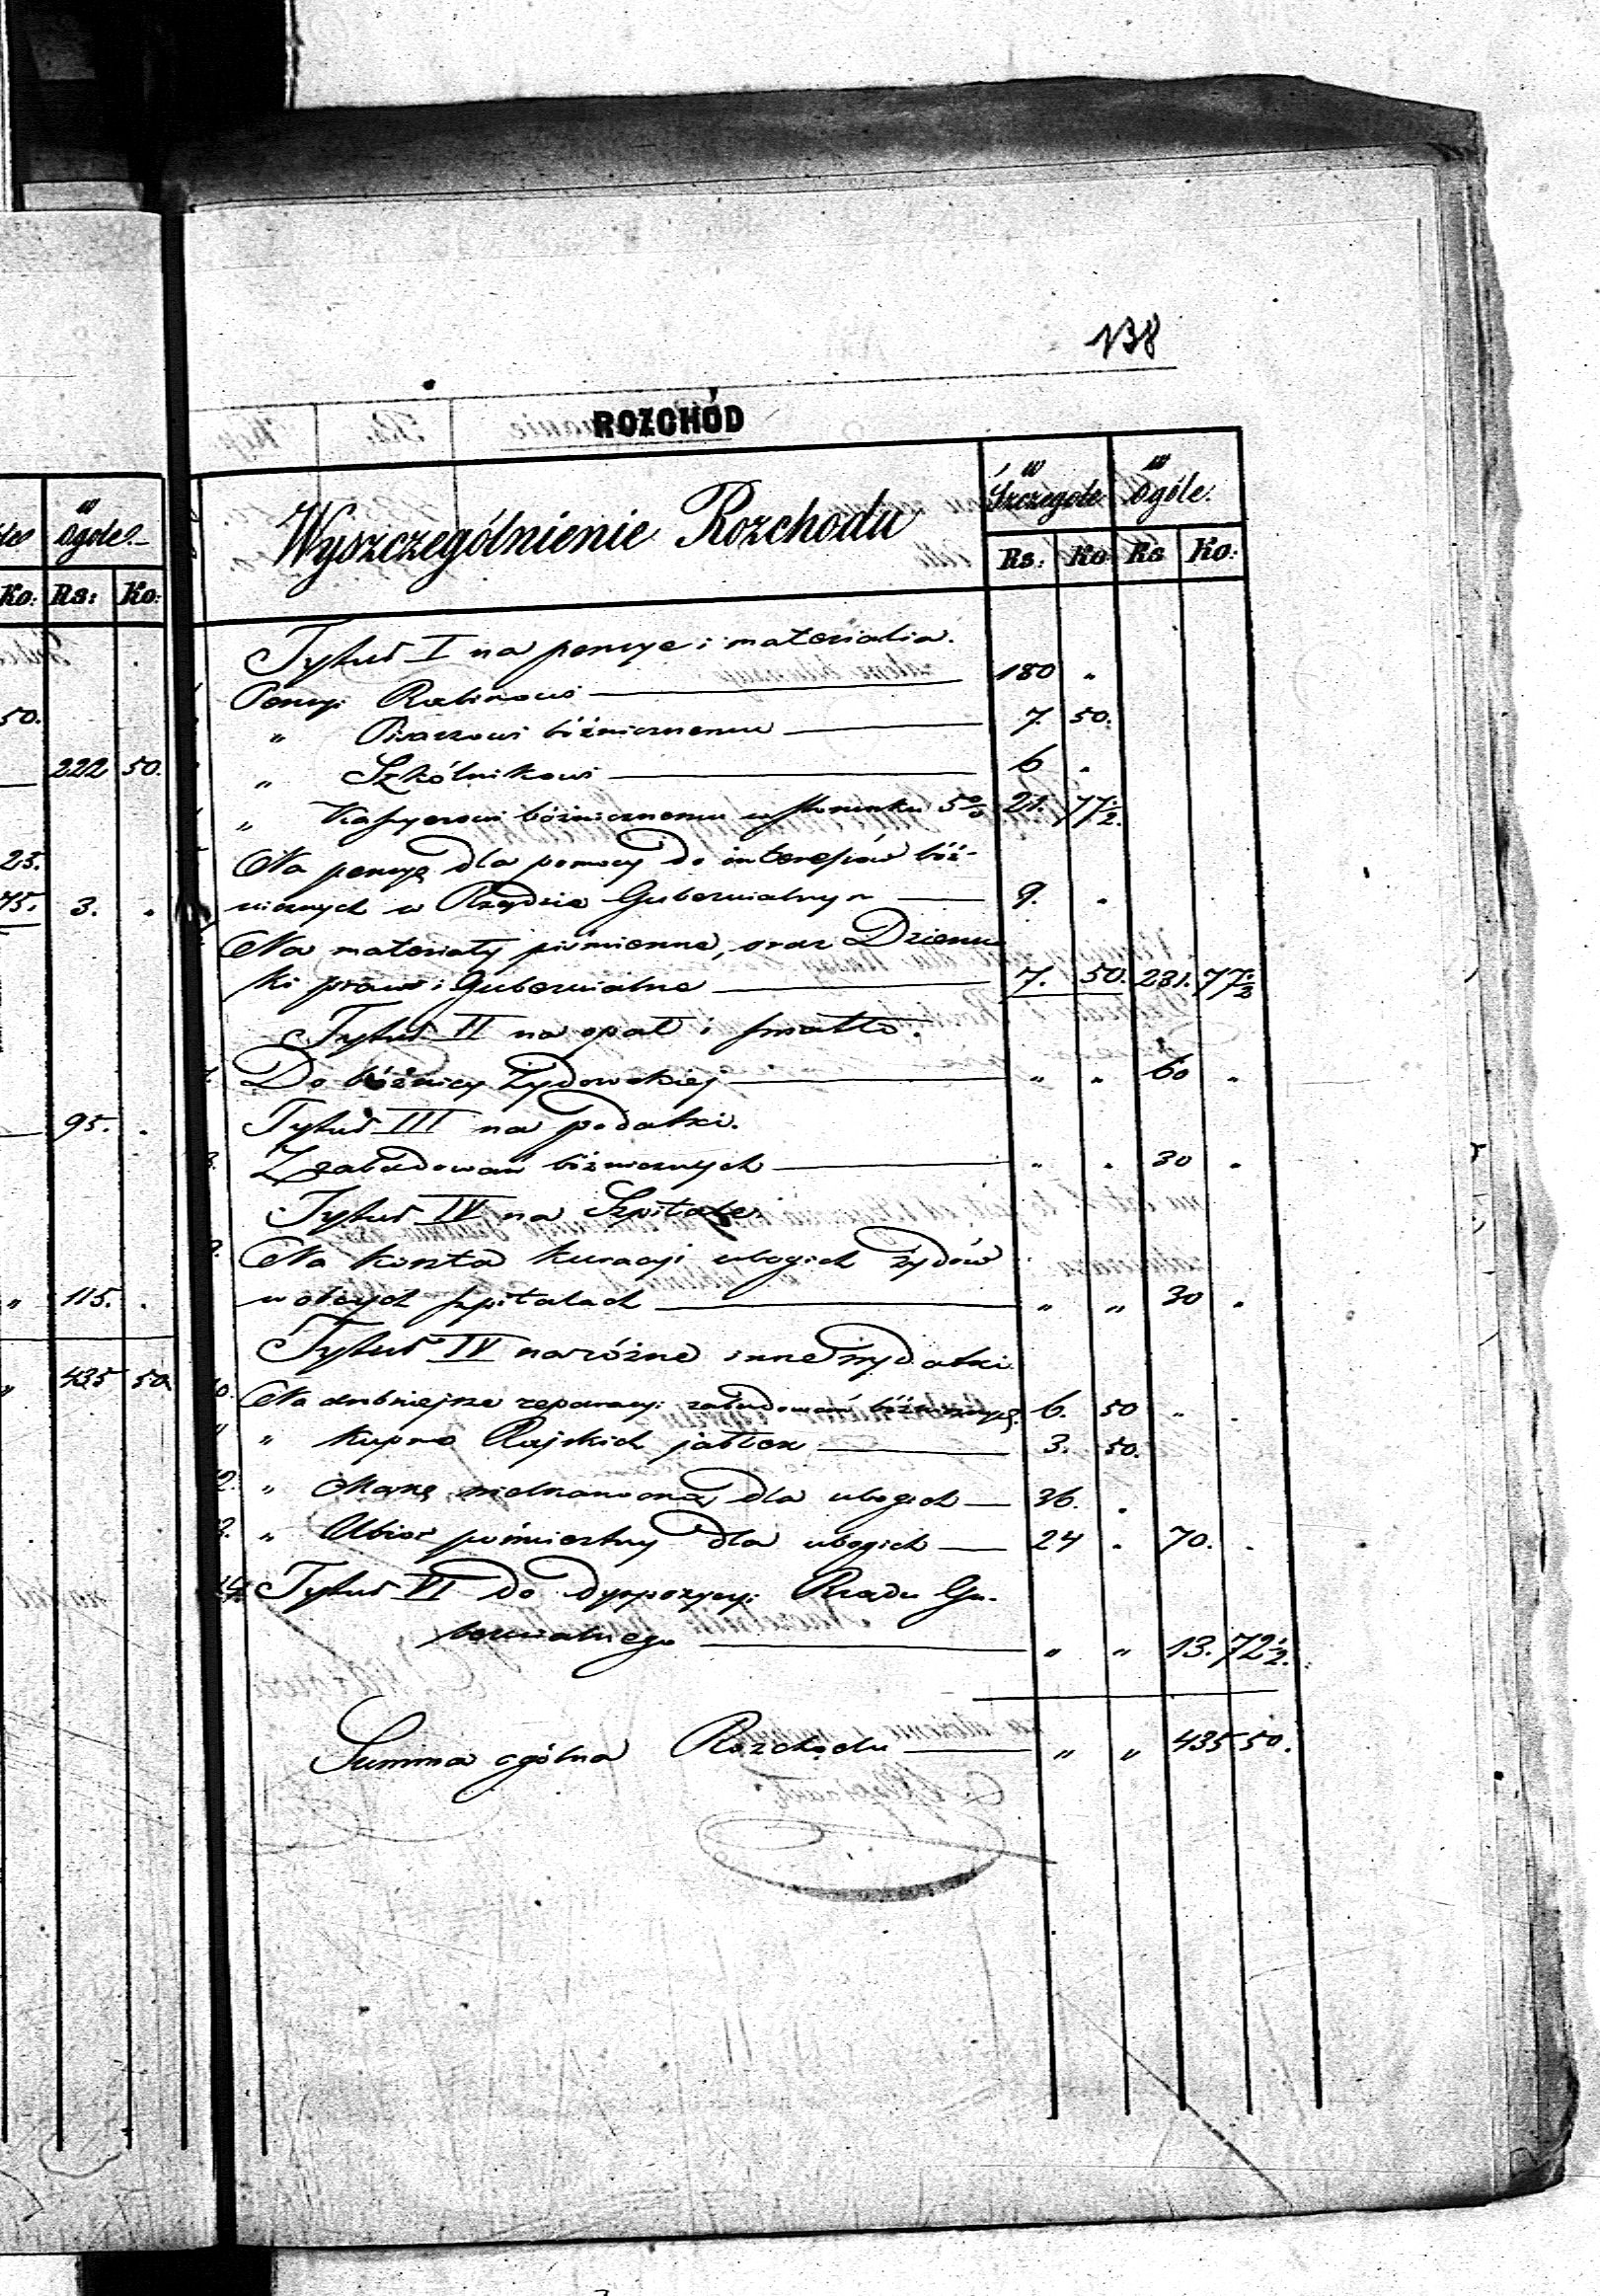 138
ROZCHÓD
Wyszczególnienie Rozchodu
w Szczegole w ogóle.
Rs: Ko Rs Ko:
ogole.
Ko: Rs: Ko:
Tytuł I na pensye i materialia.
Pensyi Rabinowi 180 "
" Pisarzowi bóżnicznemu 7. 50.
" Szkólnikowi 6 .
" Kassyerowi bóżnicznemu w stosunku 5% 21. 77 1/2.
Na pensyę dla pomocy do interessów bóż-
nicznych w Rządzie Gubernialnym 9. .
Na materiały piśmienne, oraz Dzienni
ki praw i Gubernialne 7. 50. 231. 77 1/2
Tytuł II na opał i światło.
Do bóżnicy Żydowskiej " " 60 .
Tytuł III na podatki.
Z zabudowań bóżnicznych " . 30 .
Tytuł IV na Szpitale.
9. Na koszta kuracyi ubogich żydów
w obcych szpitalach " " 30 .
Tytuł IV na różne inne wydatki
10. Na drobniejsze reparacyi zabudowań bóżnicznych 6. 50 " .
" " kupno Rajskich jabłek 3. 50.
2. " Mąkę dla ubogich 36. .
3. " Ubiór pośmiertny dla ubogich 24 . 70. .
14 Tytuł VI do dyspozycyi Rządu Gu-
bernialnego " " 13. 72 1/2.
Summa ogólna Rozchodu " " 435 50.
50.
222 50.
25.
75. 3. .
95. .
" 115. .
" 435 50